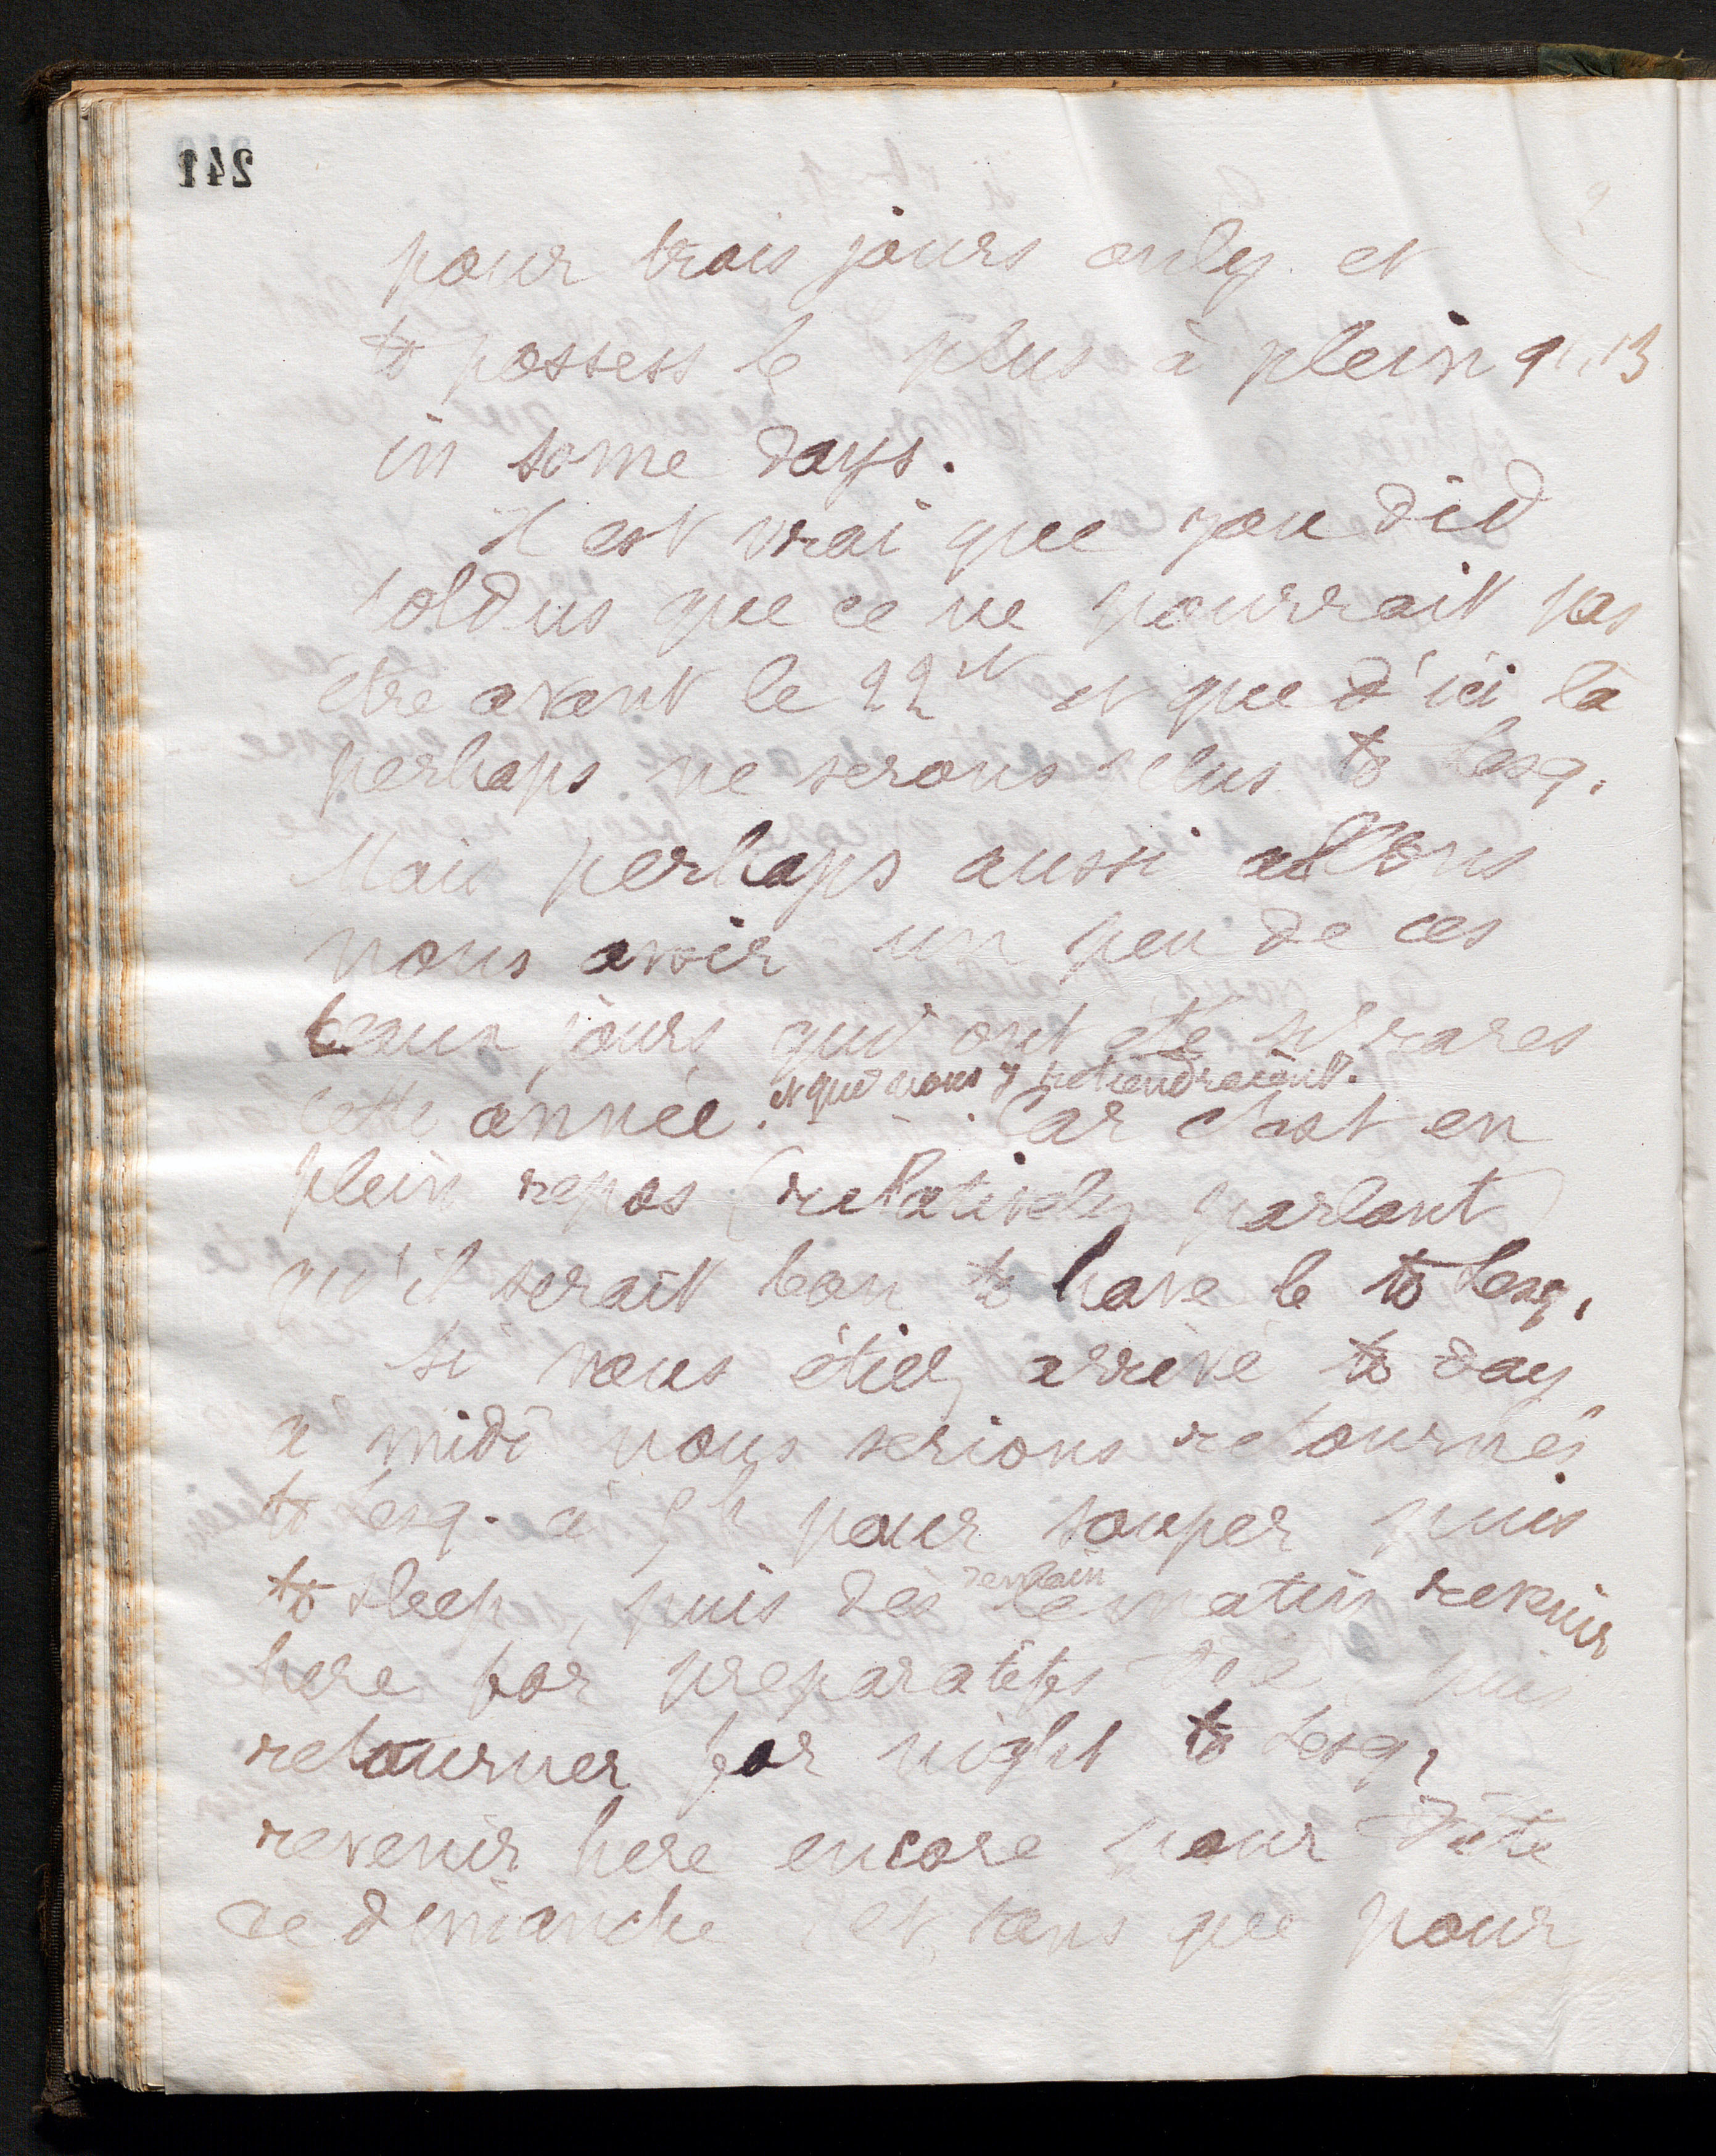 241
pour trois jours only et
to possess le plus à plein
in some days.
Il est vrai que you did
told us que ce ne pourrait pas
etre avant le 22 et que d'ici là
perhaps ne serons plus to Lesq.
Mais perhaps aussi allons
nous avoir un peu de ces
beaux jours qui ont été si rares
et qui nous y retiendraient.
cette année. Car c'est en
plein repos (relatively parlant)
qu'il serait bon to have le to Lesq.
Si vous étiez arrivé to day
à midi nous serions retournés
to Lesq. à 5h pour souper puis
to sleep, puis dès demain le matin revenir
here for preparatifs puis
retourner for night to Lesq,
revenir here encore pour
ce dimanche et tans que pour